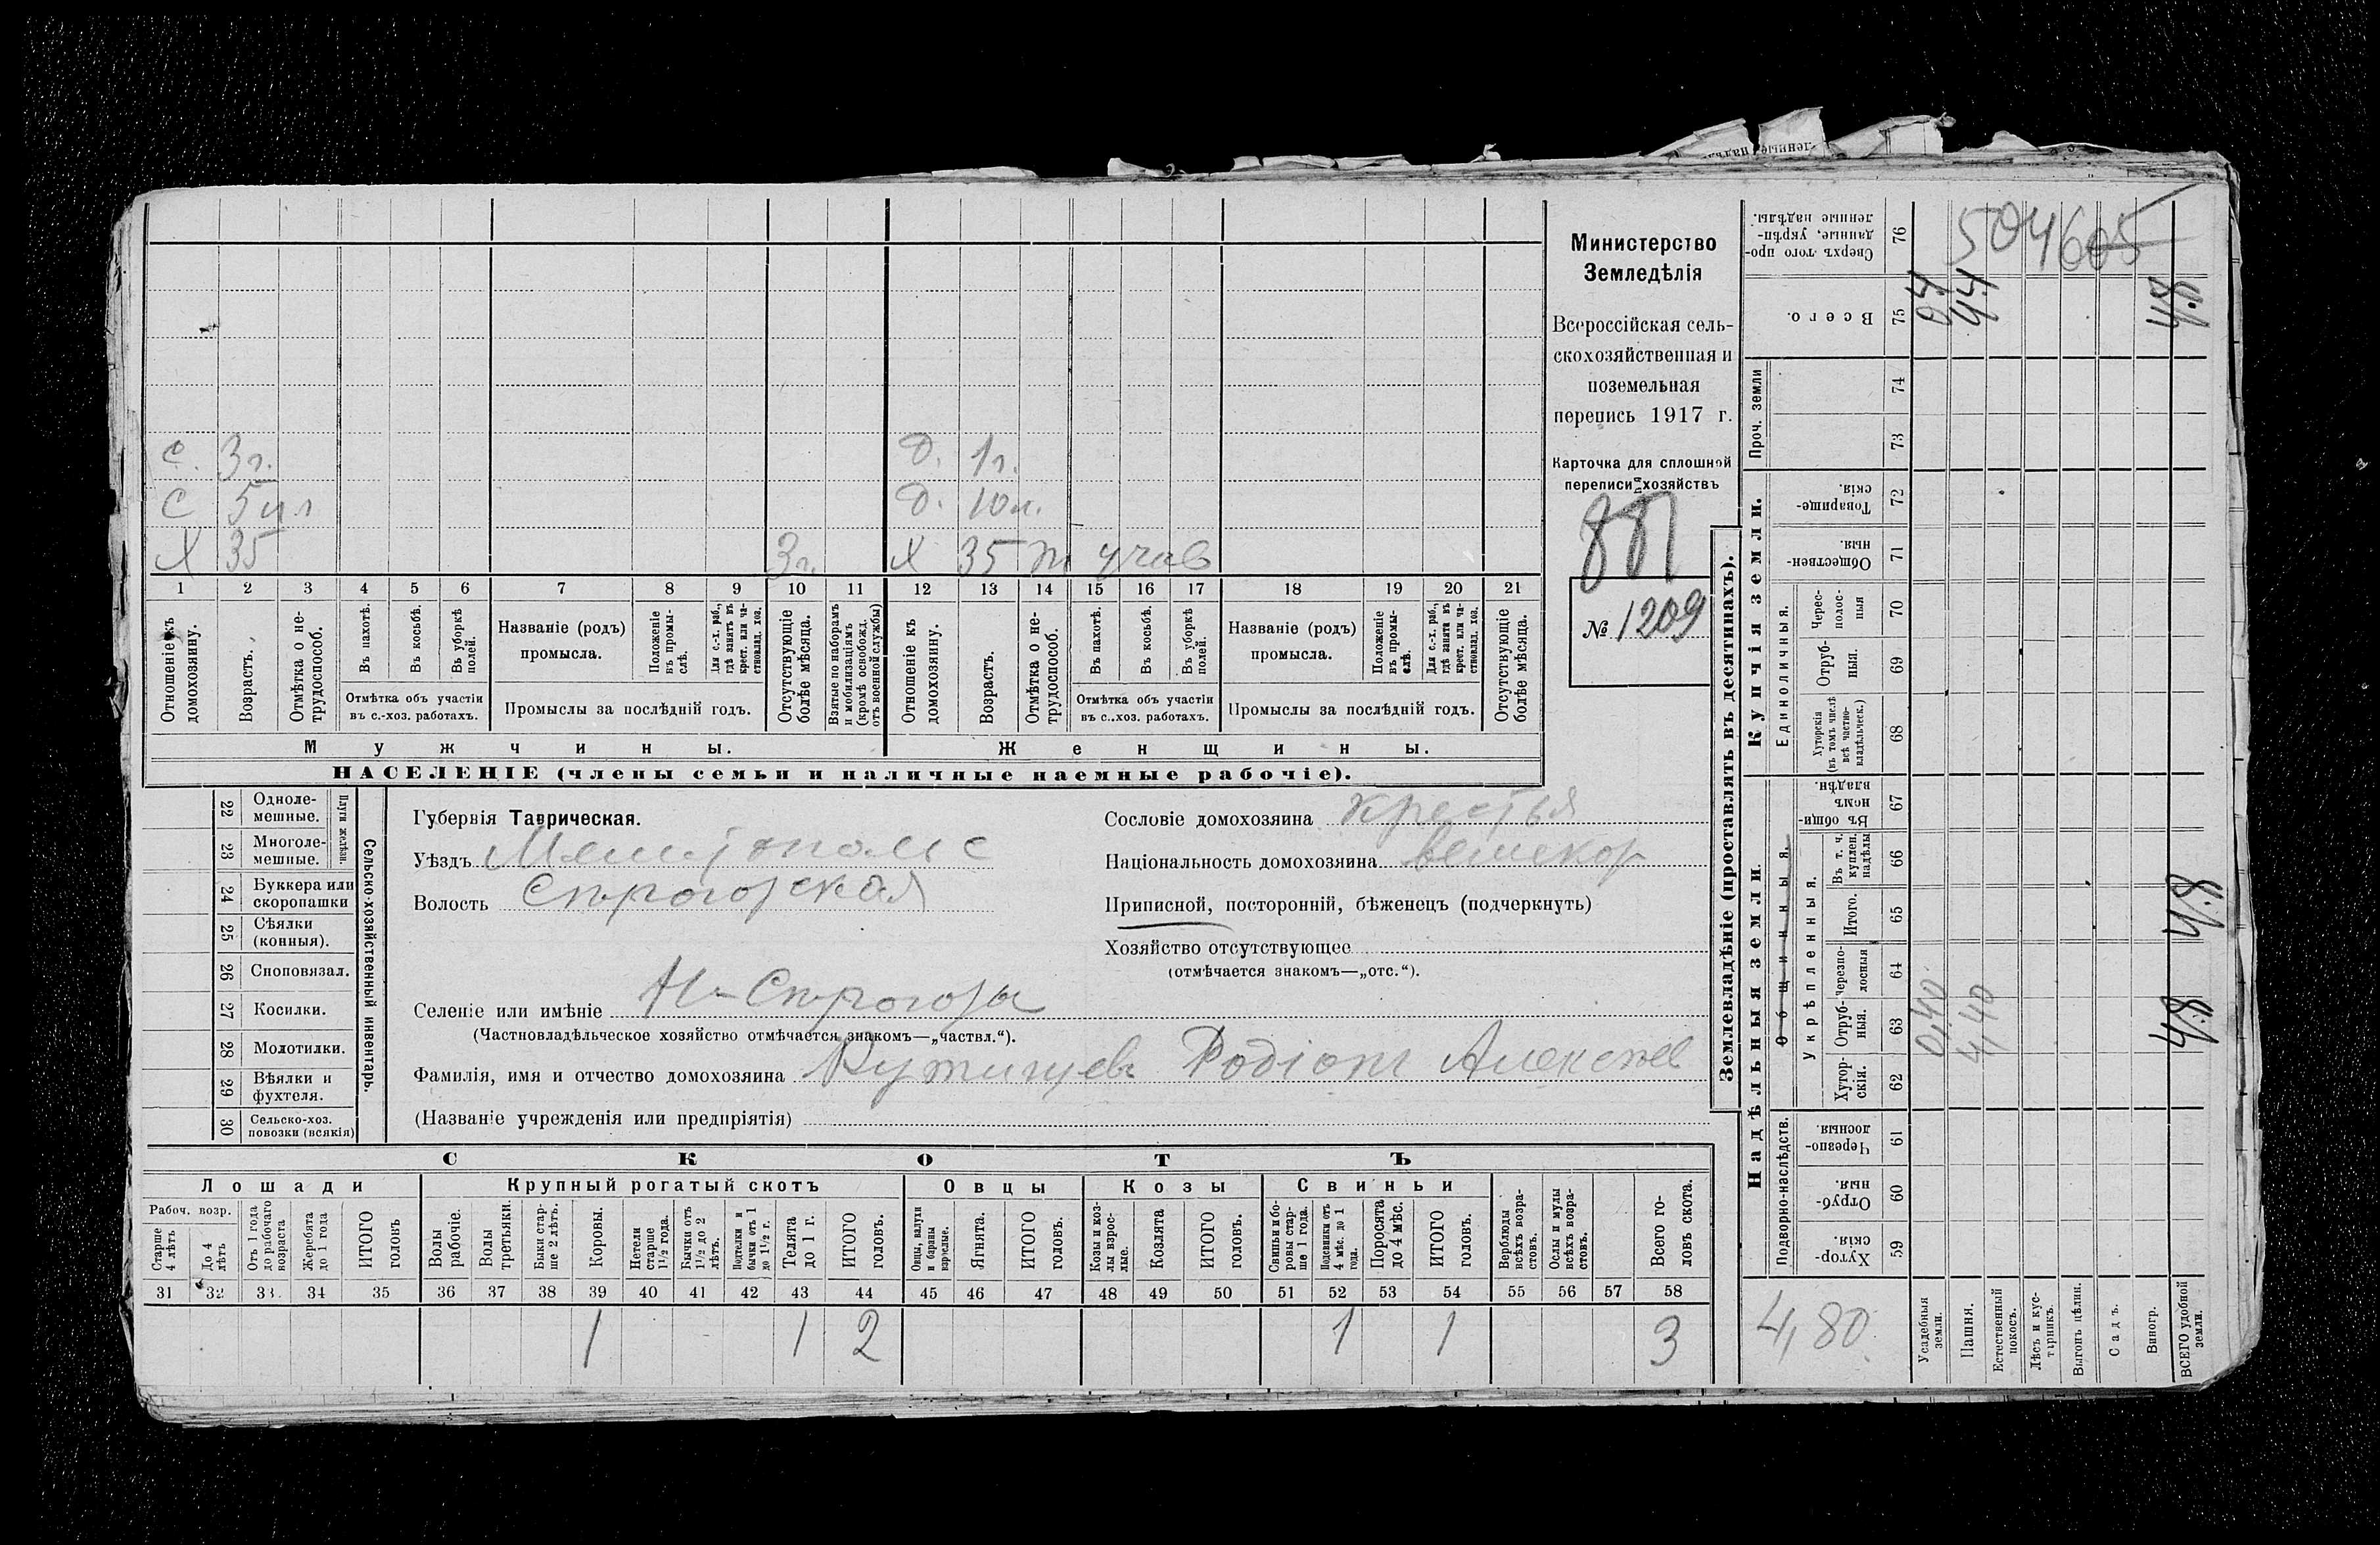 С. 3 г. Д. 1 г.
С 5 ил Д. 10 л.
Х 35 3 г. Х 35
1 2 3 4 5 6 7 8 9 10 11 12 13 14 15 16 17 18 19 20 21
Отношеніе къ домохозяину.
Возрастъ.
Отмѣтка о нетрудоспособ.
Въ пахотѣ.
Въ косьбѣ.
Въ уборкѣ полей.
Отмѣтка объ участіи въ с.-хоз. работахъ.
Названіе (родъ) промысла.
Положеніе въ промыслѣ.
Для с.-х. раб., гдѣ занятъ въ крест. или частновлад. хоз.
Промыслы за послѣдній годъ.
Отсутствующіе болѣе мѣсяца.
Взятые по наборамъ и мобилизаціямъ (кромѣ освобожд. отъ военной службы)
Отношеніе къ домохозяину.
Возрастъ.
Отмѣтка о нетрудоспособ.
Въ пахотѣ.
Въ косьбѣ.
Въ уборкѣ полей.
Отмѣтка объ участіи въ с.-хоз. работахъ.
Названіе (родъ) промысла.
Положеніе въ промыслѣ.
Для с.-х. раб., гдѣ занята въ крест. или частновлад. хоз.
Промыслы за послѣдній годъ.
Отсутствующіе болѣе мѣсяца.
Мужчины. Женщины.
НАСЕЛЕНІЕ (члены семьи и наличные наемные рабочіе).
Министерство
Земледѣлія
Всероссійская сель-
скохозяйственная и
поземельная
перепись 1917 г.
Карточка для сплошной
переписи хозяйствъ
881
№ 1209
22 Одноле-мешные.
23 Многоле-мешные.
Плуги желѣзн.
24 Буккера или скоропашки
25 Сѣялки (конныя).
26 Сноповязал.
27 Косилки.
28 Молотилки.
29 Вѣялки и фухтеля.
30 Сельско-хоз. повозки (всякія)
Сельско-хозяйственный инвентарь.
Губернія Таврическая.
Уѣздъ Мелитопольс
Волость
Селеніе или имѣніе
(Частновладѣльческое хозяйство отмѣчается знакомъ—„частвл.“).
Фамилія, имя и отчество домохозяина Родіонъ Алексѣев
(Названіе учрежденія или предпріятія)
Сословіе домохозяина крестья
Національность домохозяина великор
Приписной, посторонній, бѣженецъ (подчеркнуть)
Хозяйство отсутствующее
(отмѣчается знакомъ—„отс.“).
СКОТЪ
Лошади Крупный рогатый скотъ Овцы Козы Свиньи
Рабоч. возр.
Старше 4 лѣтъ
До 4 лѣтъ
Отъ 1 года до рабочаго возраста
Жеребята до 1 года
ИТОГО головъ
Волы рабочіе.
Волы третьяки.
Быки старше 2 лѣтъ.
Коровы.
Нетели старше 1 1/2 года.
Бычки отъ 1 1/2 до 2 лѣтъ.
Подтелки и бычки отъ 1 до 1 1/2 г.
Телята до 1 г.
ИТОГО головъ.
Овцы, валухи и бараны взрослые.
Ягнята.
ИТОГО головъ.
Козы и козлы взрослые.
Козлята
ИТОГО головъ.
Свиньи и боровы старше 1 года.
Подсвинки отъ 4 мѣс. до 1 года.
Поросята до 4 мѣс.
ИТОГО головъ.
Верблюды всѣхъ возрастовъ.
Ослы и мулы всѣхъ возрастовъ.
Всего головъ скота.
31 32 33 34 35 36 37 38 39 40 41 42 43 44 45 46 47 48 49 50 51 52 53 54 55 56 57 58
1 1 2 1 1 3
Землевладѣніе (проставлять въ десятинахъ).
Надѣльныя земли.
Купчія земли.
Проч. земли
Подворно-наслѣдств.
Общинныя.
Укрѣпленныя.
Единоличныя.
Хуторскія. 59
Отрубныя. 60
Черезполосныя 61
Хуторскія. 62
Отрубныя. 63
Черезполосныя 64
Итого. 65
Въ т. ч. куплен. надѣлы 66
Въ общинномъ владѣн. 67
Хуторскія (въ томъ числѣ всѣ частновладѣльческ.) 68
Отрубныя. 69
Черезполосныя 70
Общественныя. 71
Товарищескія. 72
73
74
Всего. 75
Сверхъ того проданные, укрѣпленные надѣлы. 76
504605
0.4 4.4 4.8
4.8
0,40 4,40 4.8
4,80
Усадебныя земли.
Пашня.
Естественный покосъ.
Лѣсъ и кустарникъ.
Выгонъ цѣлин.
Садъ.
Виногр.
ВСЕГО удобной земли.